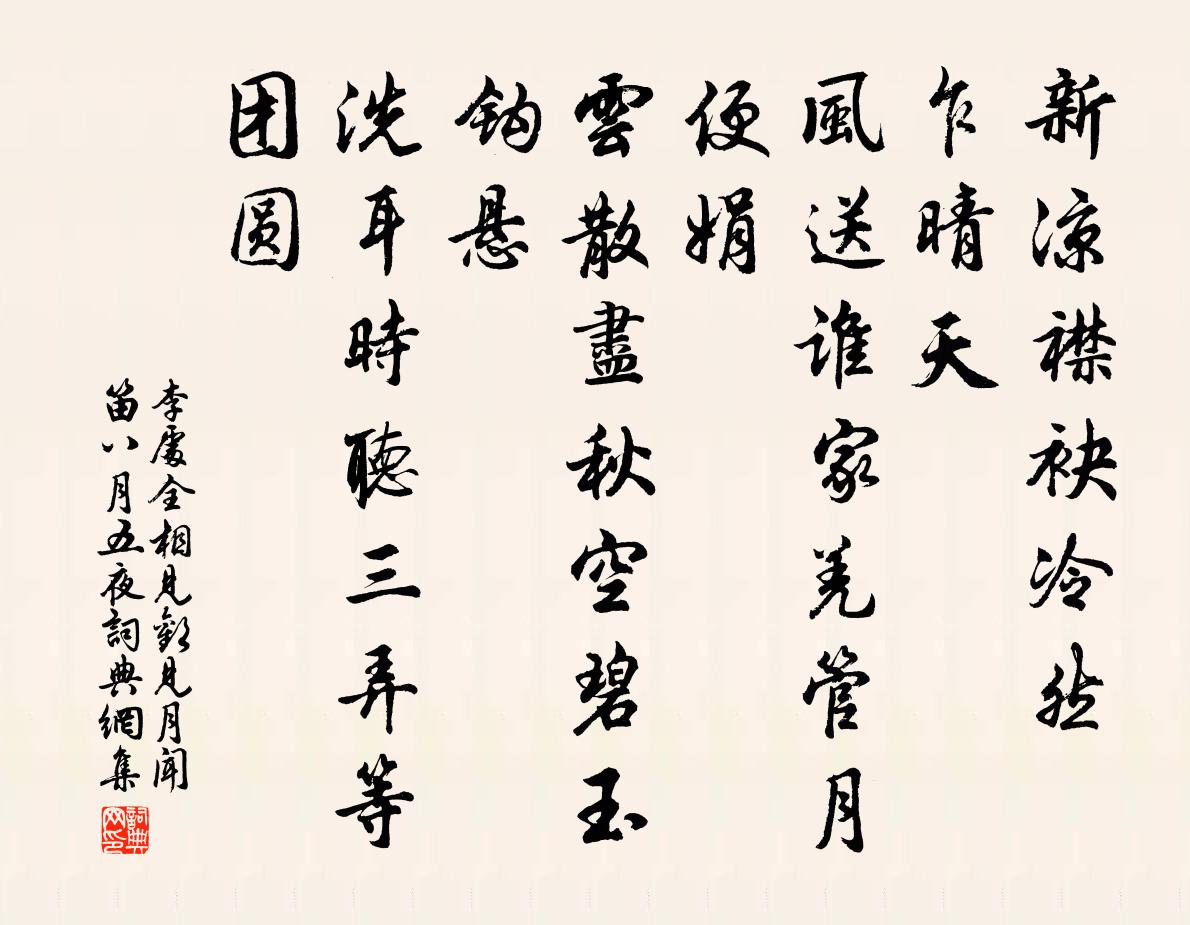 新涼襟袂冷然
乍晴天
風送誰家羌管月
便娟
雲散盡秋空碧玉
鈎悬
洗耳時聽三弄等
团圆
李處全相見歡見月聞
笛八月五夜詞典網集
詞典
网印